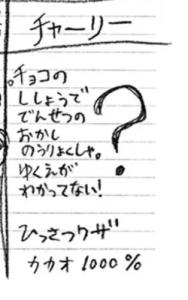 チャーリー
チョコの
ししょうで
でんせつの
おかし
のうりょくしゃ。
ゆくえが
わかってない!
?
ひっさつワザ
カカオ1000%